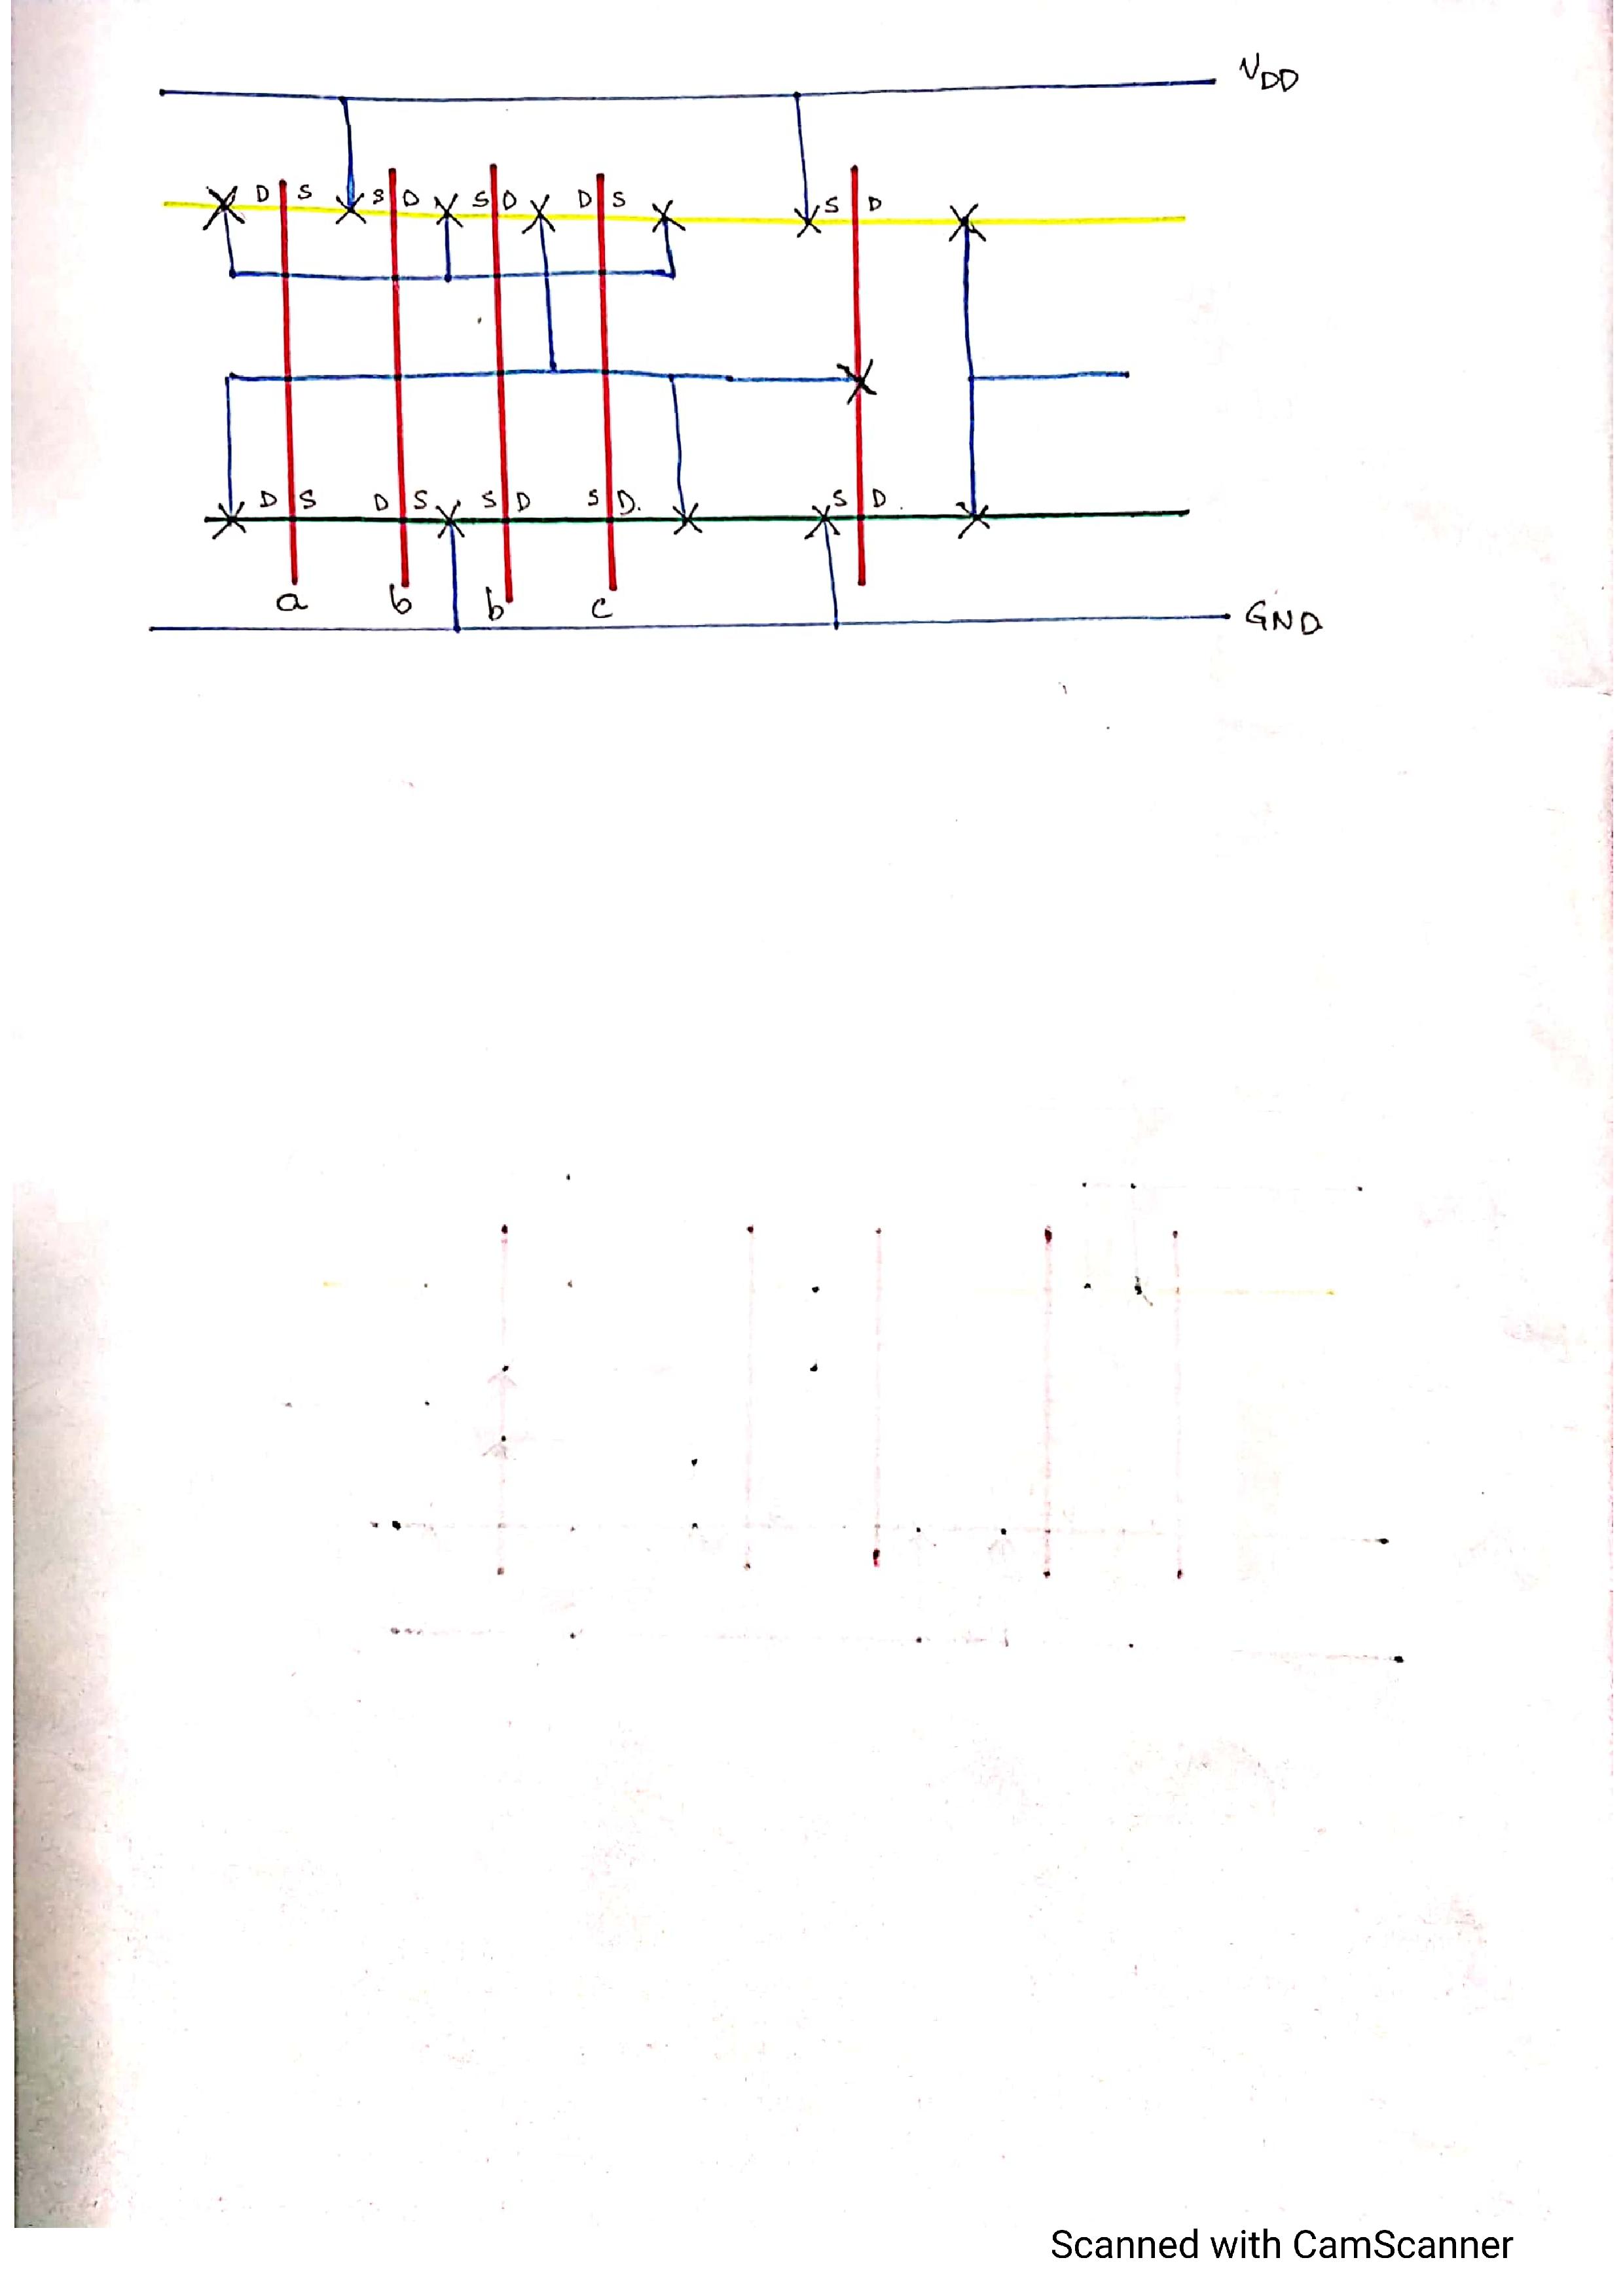 VDD
D S S D S D D S S D
D S D S S D S D. S D.
a b b c
GND
Scanned with CamScanner